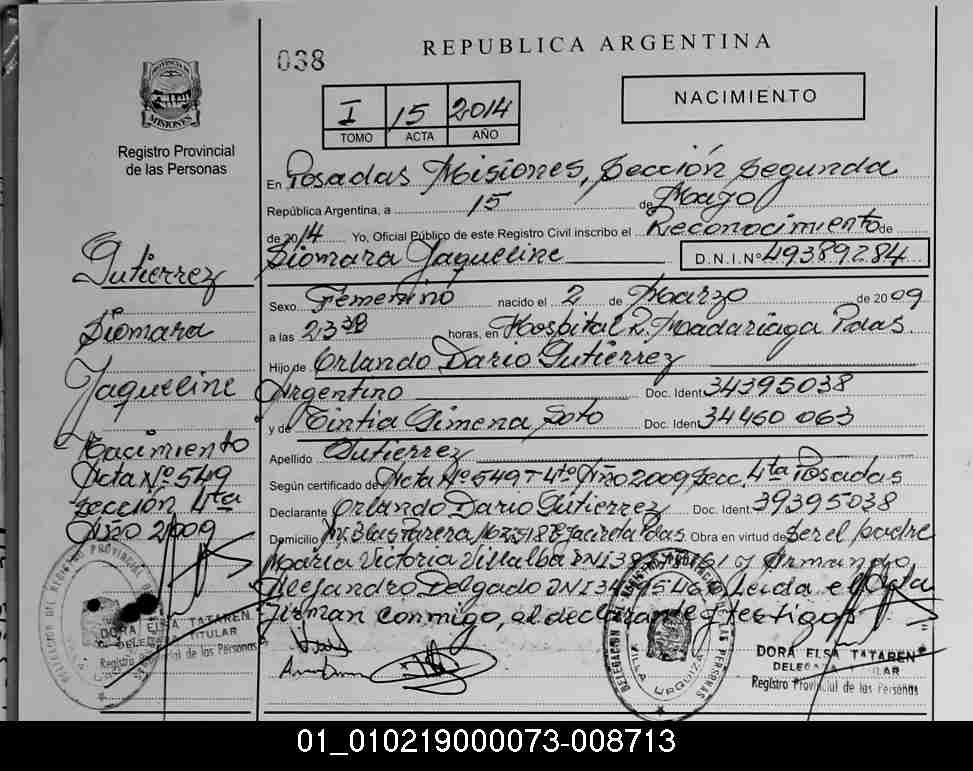 038
REPUBLICA ARGENTINA
PROVINCIA DE MISIONES
Registro Provincial
de las Personas
I 15 2014
TOMO ACTA AÑO
NACIMIENTO
En Posadas Misiones, Sección Segunda
República Argentina, a 15 de Mayo
de 2014 Yo, Oficial Público de este Registro Civil inscribo el Reconocimiento de
Siomara Jaqueline D.N.I.Nº 49389284
Sexo Femenino nacido el 2 de Marzo de 2009
a las 23 38 horas, en Hospital R. Madariaga Pdas.
Hijo de Orlando Dario Gutierrez
Argentino Doc. Ident. 34395038
y de Cintia Gimena Soto Doc. Ident. 34460 063
Apellido Gutierrez
Según certificado de Acta Nº 549 - 4to Año 2009 Secc. 4ta Posadas
Declarante Orlando Dario Gutierrez Doc. Ident. 39395038
Domicilio Av. Blas Parera Pdas. Obra en virtud de Ser el padre
Maria Victoria Villalba DNI y Armando
Alejandro Delgado DNI Leida el Acta
Firman conmigo, el declarante y testigos
Gutierrez
Siomara
Jaqueline
Nacimiento
Acta Nº 549
Sección 4ta
Año 2009
DORA ELSA TATAREN
DELEGADA TITULAR
Registro Provincial de las Personas
DELEGACION DEL REGISTRO PROVINCIAL DE LAS PERSONAS
VILLA URQUIZA
DORA ELSA TATAREN
DELEGADA TITULAR
Registro Provincial de las Personas
01_010219000073-008713